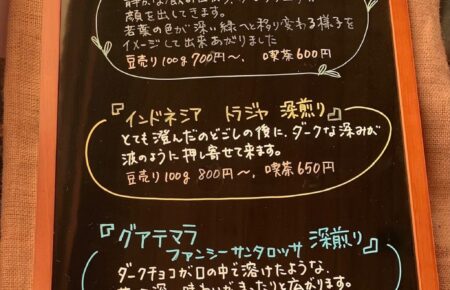 顔を出してきます。
若葉の色が深い緑へと移り変わる様子を
イメージして出来あがりました
豆売り100g 700円〜、喫茶600円
『インドネシア トラジャ 深煎り』
とても澄んだのどごしの後に、ダークな深みが
波のように押し寄せて来ます。
豆売り100g 800円〜、喫茶650円
『グアテマラ
ファンシーサンタロッサ 深煎り』
ダークチョコが口の中で溶けたような、